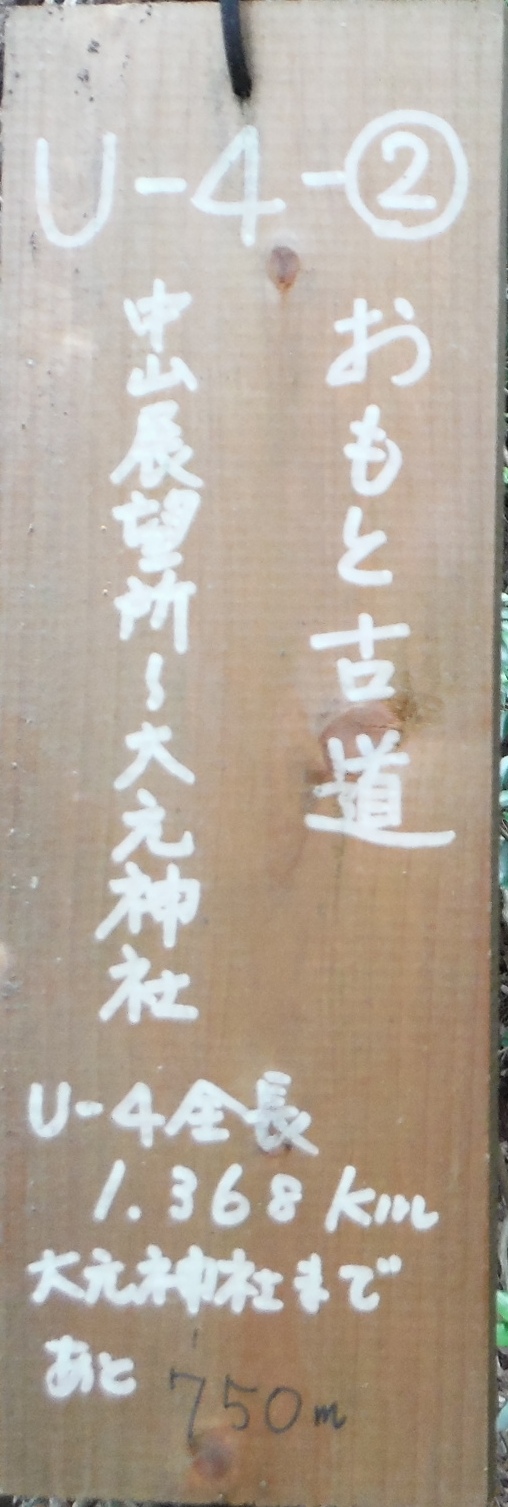 U-4-②
おもと古道
中山展望所～大元神社
U-4全長
1.368km
大元神社まで
あと 750m